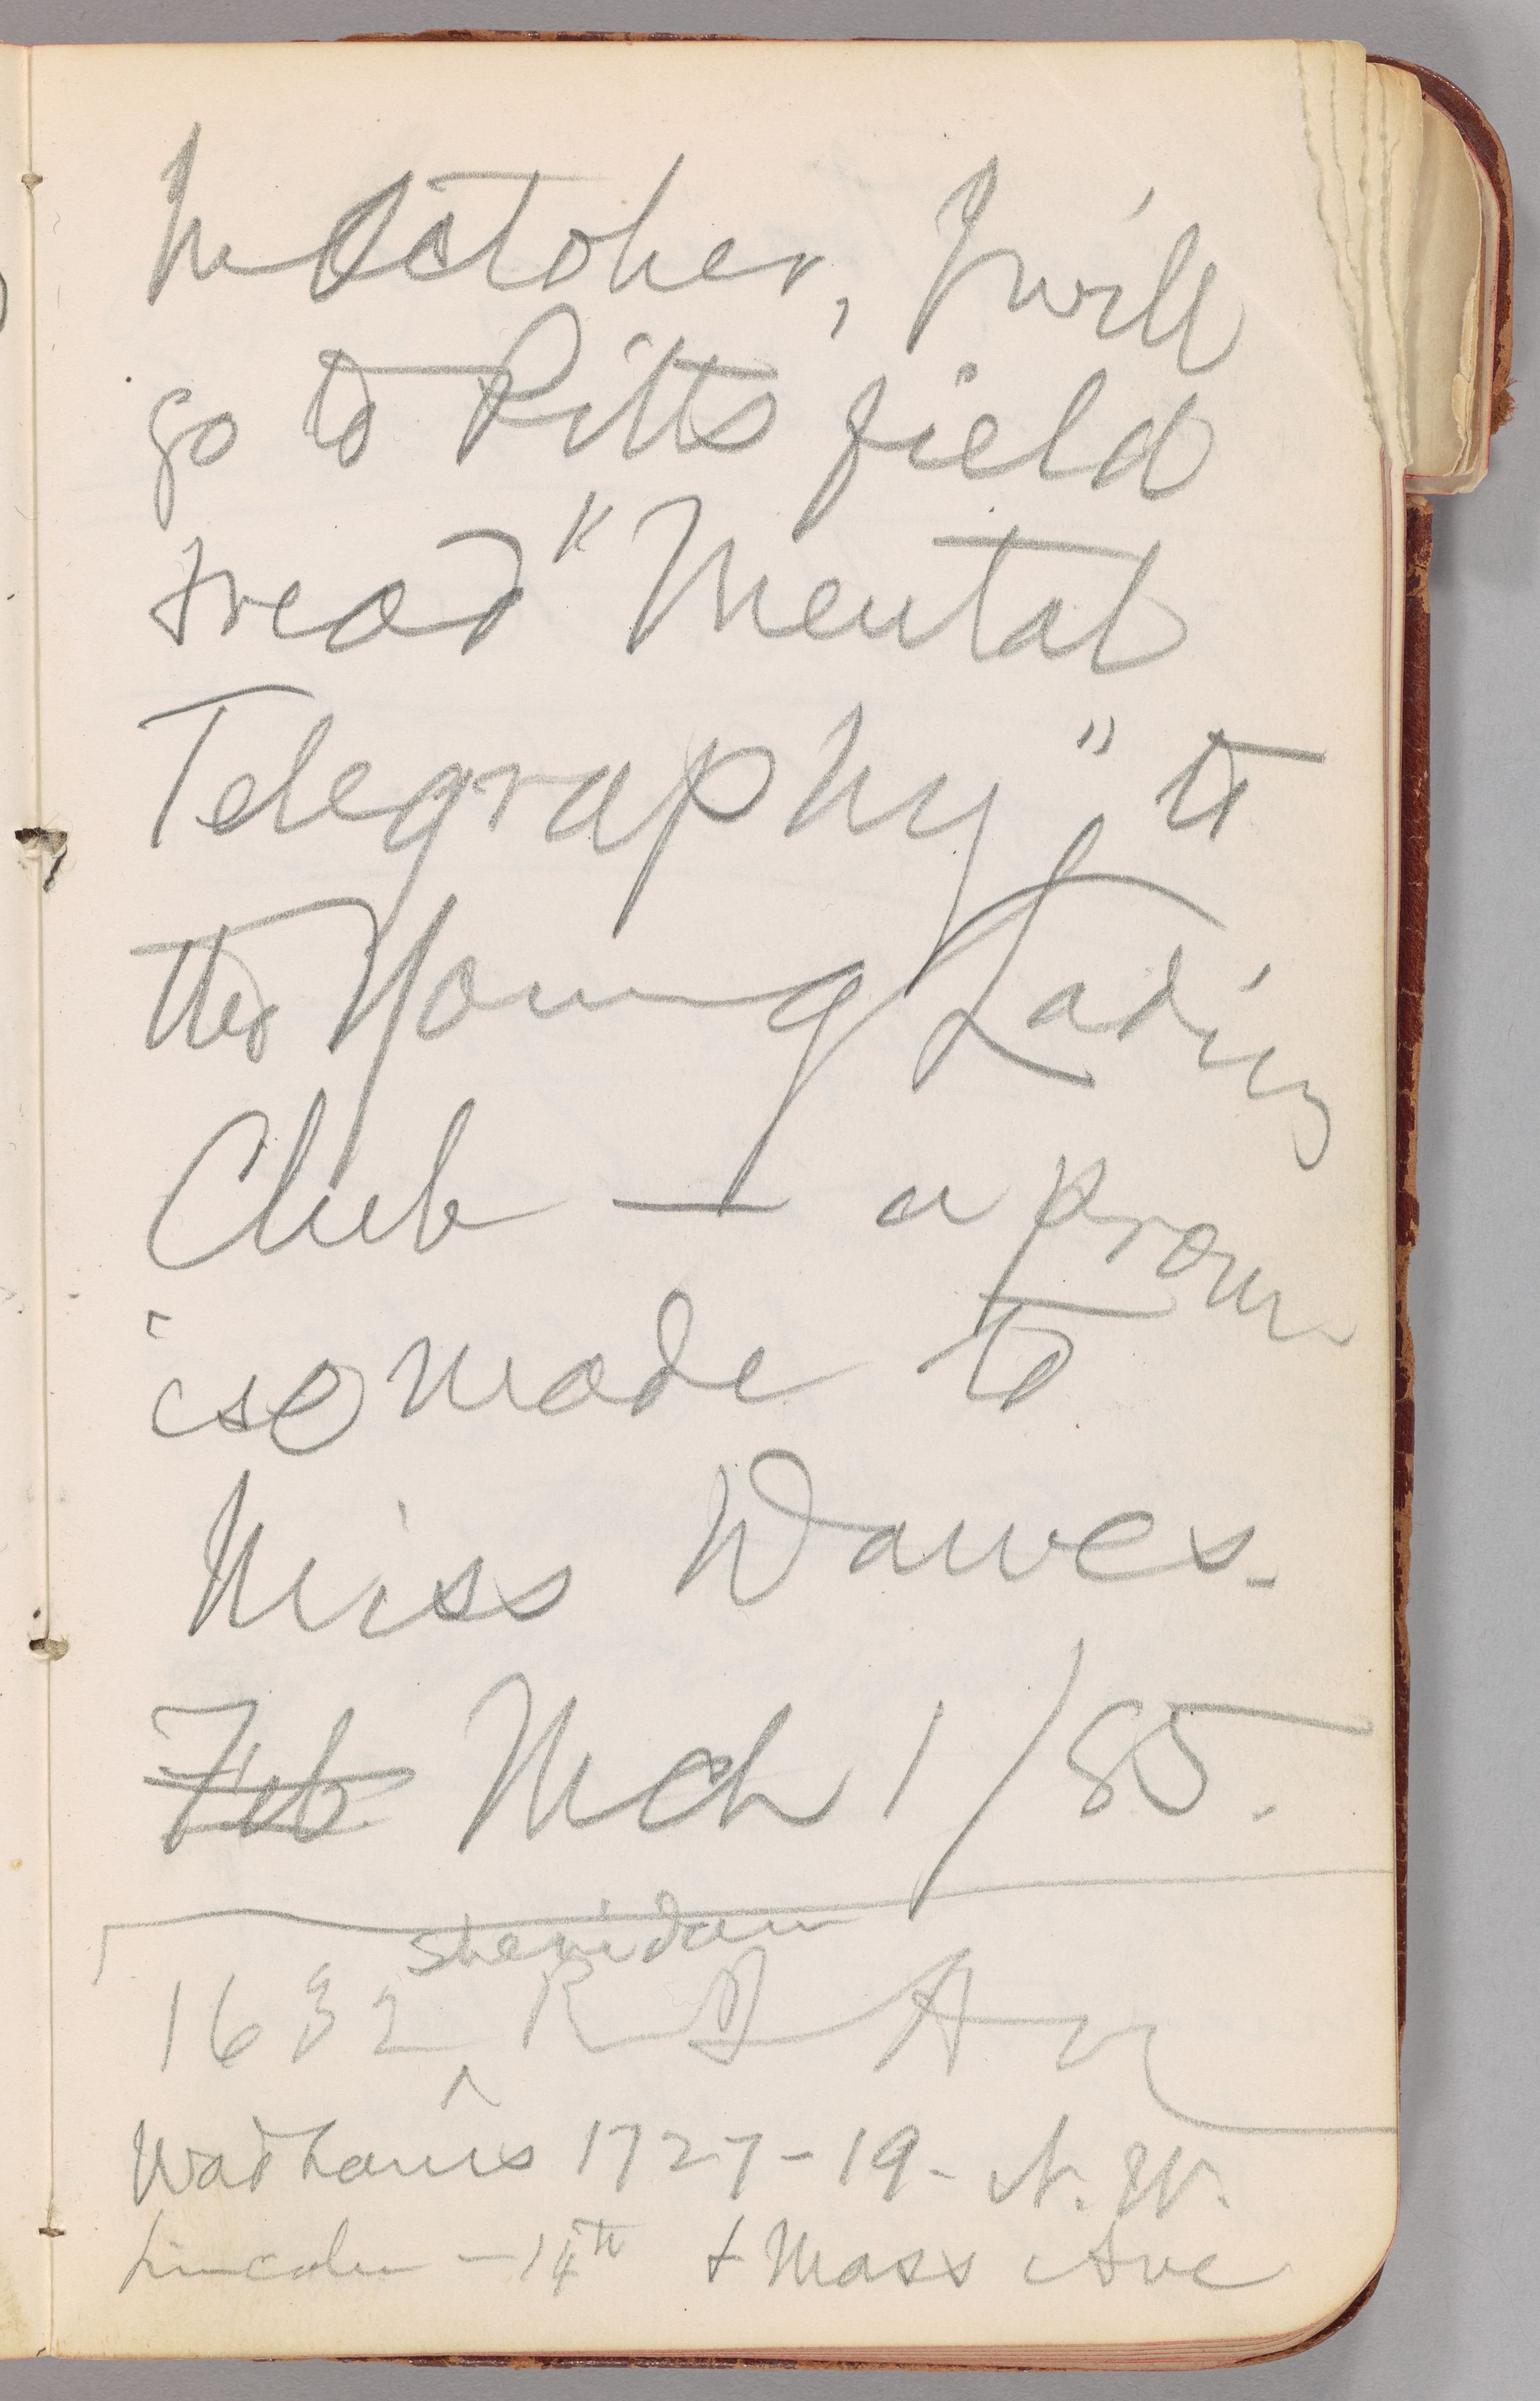 In October, I will
go to Pitts field
& read "Mental
Telegraphy" to
the Young Ladies
Club — a prom
ise made to
Miss Dawes.
Feb Mch 1/85.
Sheridan
1632 R I Av
Wadhams 1727 - 19 - N. W.
Lincoln - 14th & Mass Ave